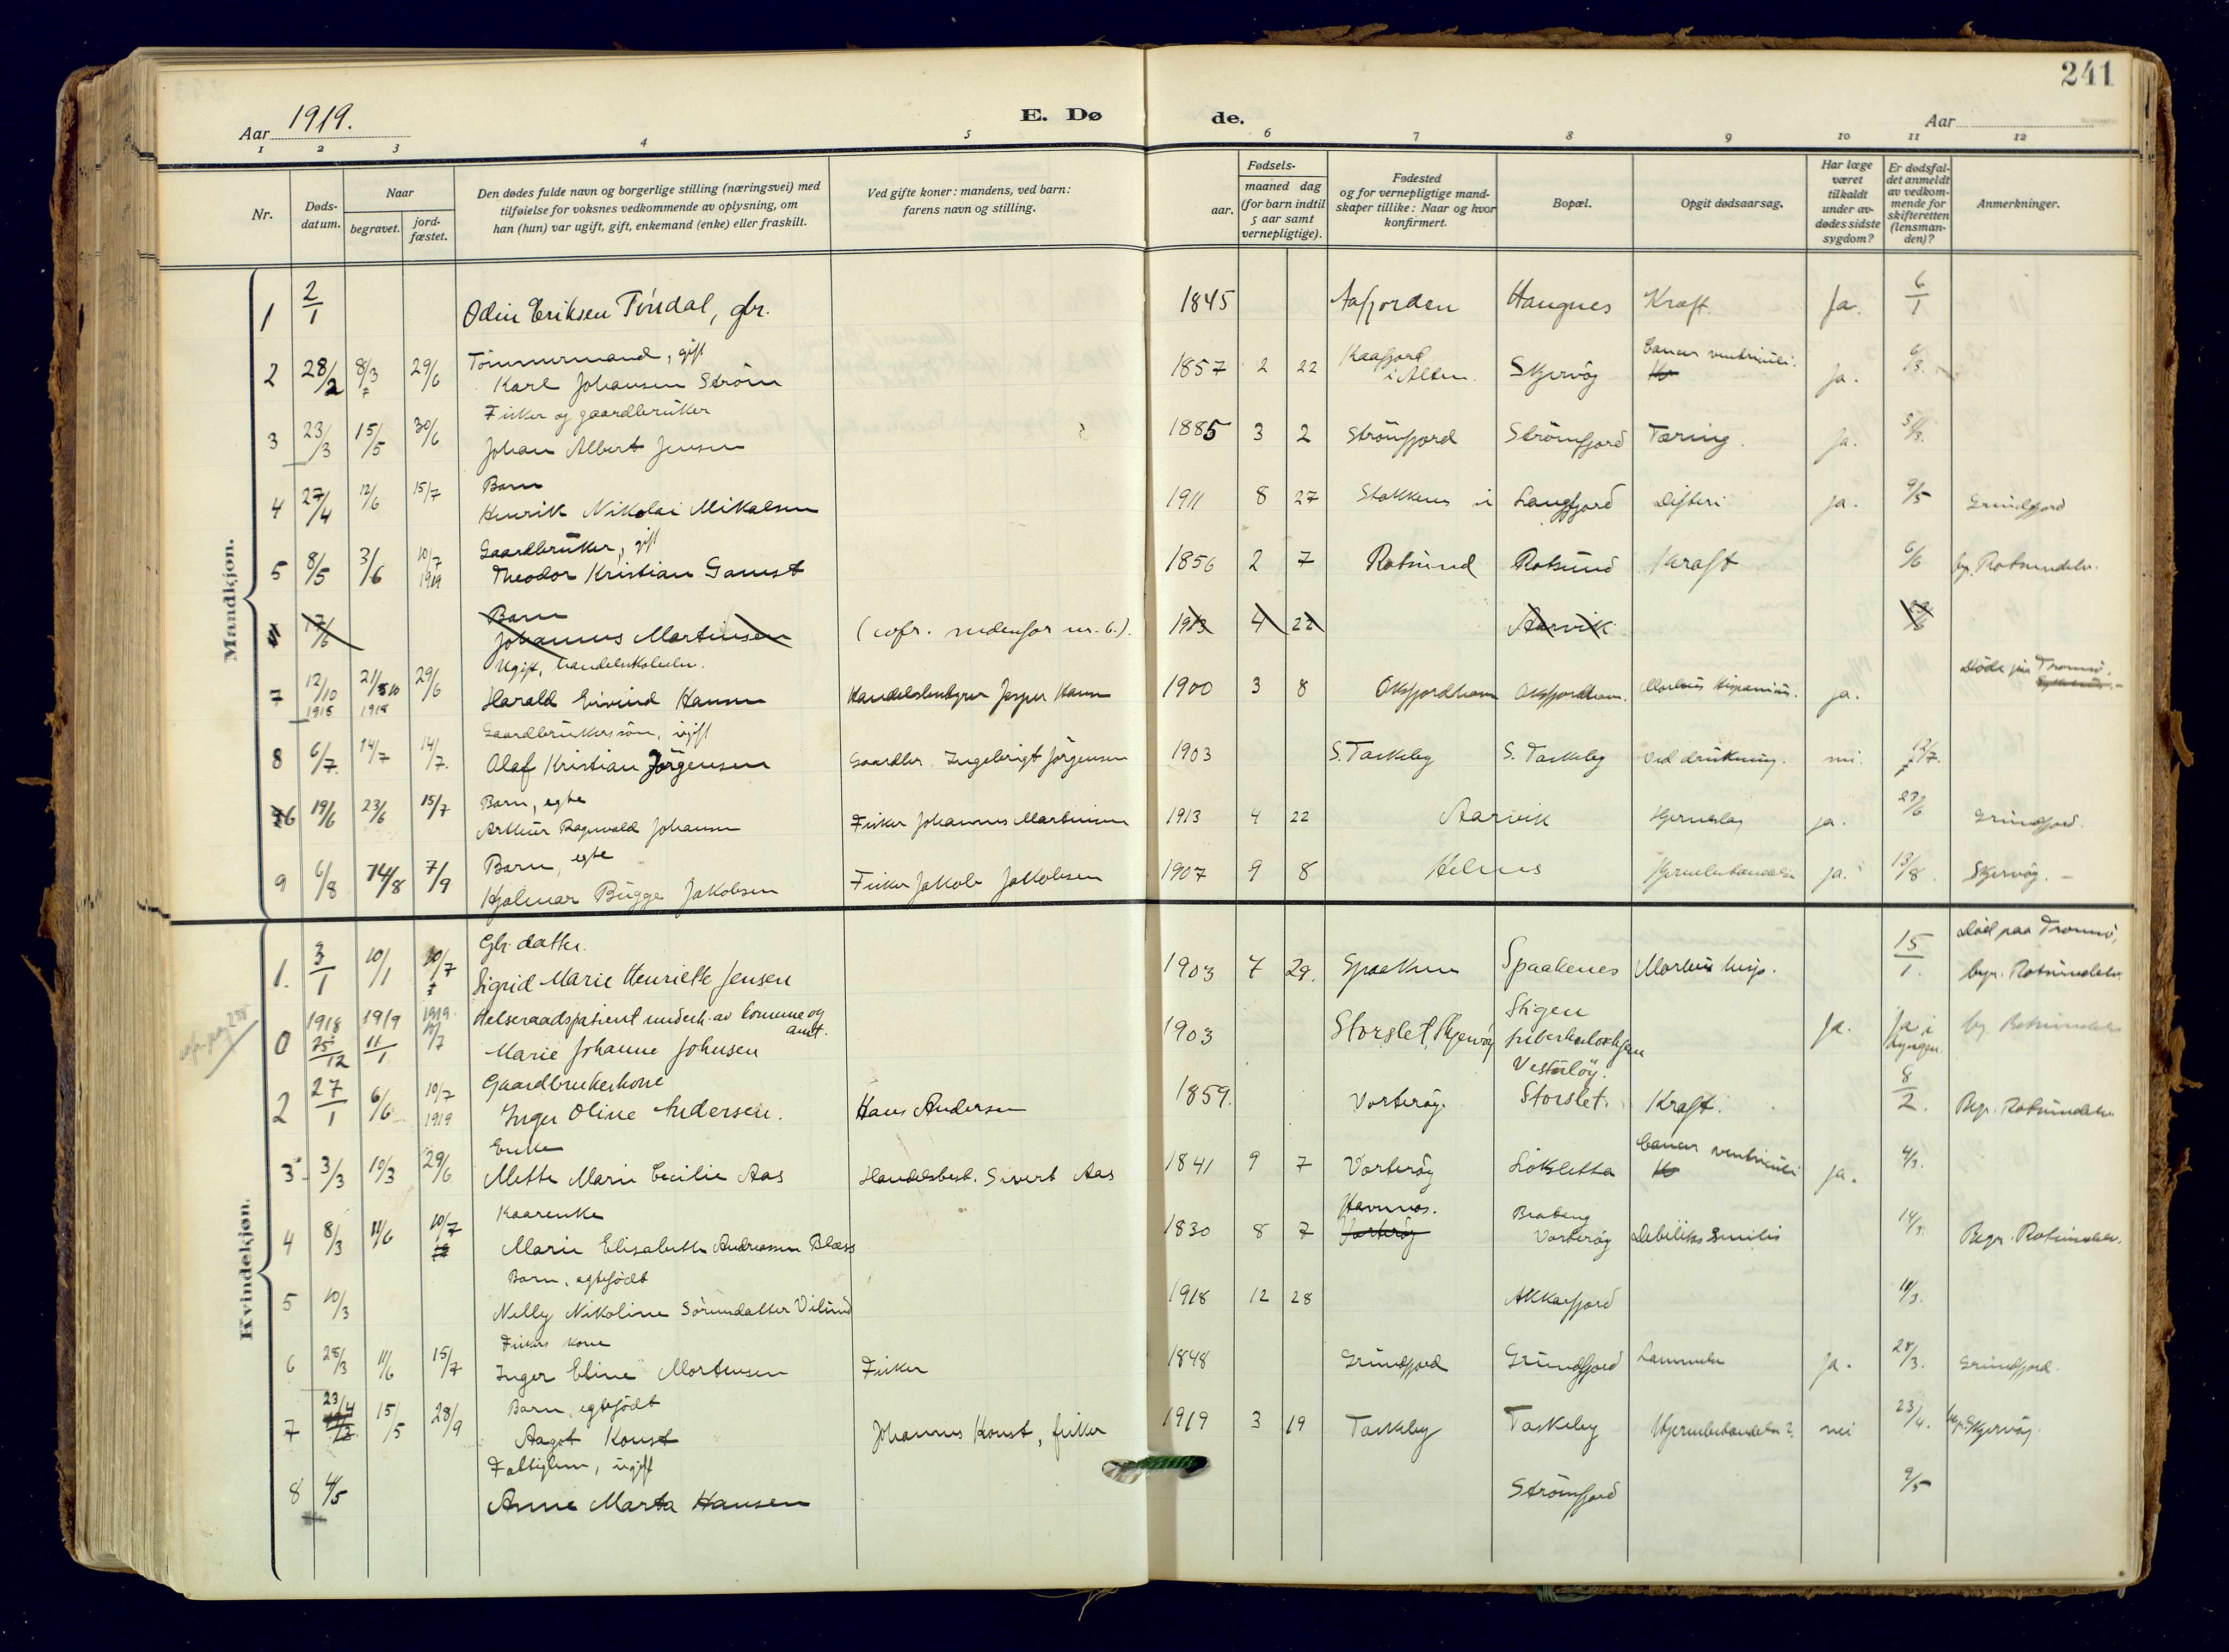 241
Aar 1919.
E. Dø de.
Aar
1 2 3 4 5 6 7 8 9 10 11 12
Nr.
Døds-datum.
Naar
begravet.
jord-fæstet.
Den dødes fulde navn og borgerlige stilling (næringsvei) med
tilføielse for voksnes vedkommende av oplysning, om
han (hun) var ugift, gift, enkemand (enke) eller fraskilt.
Ved gifte koner: mandens, ved barn:
farens navn og stilling.
Fødsels-
aar.
maaned dag
(for barn indtil
5 aar samt
vernepligtige).
Fødested
og for vernepligtige mand-
skaper tillike: Naar og hvor
konfirmert.
Bopæl.
Opgit dødsaarsag.
Har læge
været
tilkaldt
under av-
dødes sidste
sygdom?
Er dødsfal-
det anmeldt
av vedkom-
mende for
skifteretten
(lensman-
den)?
Anmerkninger.
Mandkjøn.
1 2/1 Odin Eriksen Tindal, gbr. 1845 Aafjorden Haugnes Kræft. Ja. 6/1
Tömmermand, gift
2 28/2 8/3 29/6 Karl Johansen Ström 1857 2 22 Kaafjord i Alten Skjervöy Cancer ventriculi. ja.
Fisker og gaardbruker
3 23/3 15/5 30/6 Johan Albert Jensen 1885 3 2 Strömfjord Strömfjord Tæring. ja.
Barn
4 27/4 12/6 15/7 Henrik Nikolai Mikalsen 1911 8 27 Stokknes i Langfjord Difteri ja. 9/5 Grundfjord
Gaardbruker, gift
5 8/5 3/6 10/7 1919 Theodor Kristian Gamst 1856 2 7 Rotsund Rotsund Kræft 6/6 Rotsundelv.
Barn
17/6 Johannes Martinsen (cofr. nedenfor nr. 6.). 1913 4 22 Aarvik
Ugift,
7 12/10 1918 21/10 1918 29/6 Harald Eivind Hansen Jesper Hansen 1900 3 8 Oksfjordhavn Oksfjordhavn. ja. Döde paa Tromsö.
Gaardbrukerssön, ugift
8 6/7 14/7 14/7 Olaf Kristian Jörgensen Gaardbr. Ingebrigt Jörgensen 1903 S. Taskeby S. Taskeby Ved drukning. nei. 12/7.
Barn, egte
6 19/6 23/6 15/7 Arthur Ragnvald Johansen Fisker Johannes Martinsen 1913 4 22 Aarvik ja. 27/6 Grundfjord.
Barn, egte
9 6/8 14/8 7/9 Hjalmar Bugge Jakobsen Fisker Jakob Jakobsen 1907 9 8 Helnes ja. 13/8. Skjervöy. -
Kvindekjøn.
Gbr. datter.
1. 3/1 10/1 10/7 Sigrid Marie Henriette Jensen 1903 7 29. Spaaknes Spaakenes Morbus hisp. 15/1. Död paa Tromsö, begr. Rotsundelv.
Helseraadspatient underh. av kommune og amt.
0 1918 25/12 1919 11/1 1919 10/7 Marie Johanne Johnsen 1903 Storslet, Skjervöy Stigen tuberkuloshjem Vesteröy. Ja. Ja i Lyngen. Rotsundelv
Gaardbrukerkone
2 27/1 6/6 10/7 1919 Inger Oline Andersen. Hans Andersen 1859. Vorteröy. Storslet. Kræft. 8/2. Begr. Rotsundelv
Enke
3 3/3 10/3 29/6 Mette Marie Cecilie Aas Handelsbest. Sivert Aas 1841 9 7 Vorteröy Lökletta Cancer ventriculi ja. 4/3.
Kaarenke
4 8/3 11/6 10/7 Marie Elisabeth Andreasen Blæss 1830 8 7 Havnnæs. Vorteröy Vorteröy Debilitas senilis 14/3. Begr. Rotsundelv.
Barn, egtefödt
5 10/3 Nelly Nikoline Sörensdatter Vilund 1918 12 28 Akkarfjord 11/3.
Fiskers kone
6 28/3 11/6 15/7 Inger Eline Mortensen Fisker 1848 Grundfjord Grundfjord Lammelse ja. 28/3. Grundfjord.
Barn, egtefödt
7 23/4 15/5 28/9 Aagot Konst Johannes Konst, fisker 1919 3 19 Taskeby Taskeby nei 23/4. Skjervöy.
Fattiglem, ugift
8 4/5 Anne Marta Hansen Strömfjord 9/5